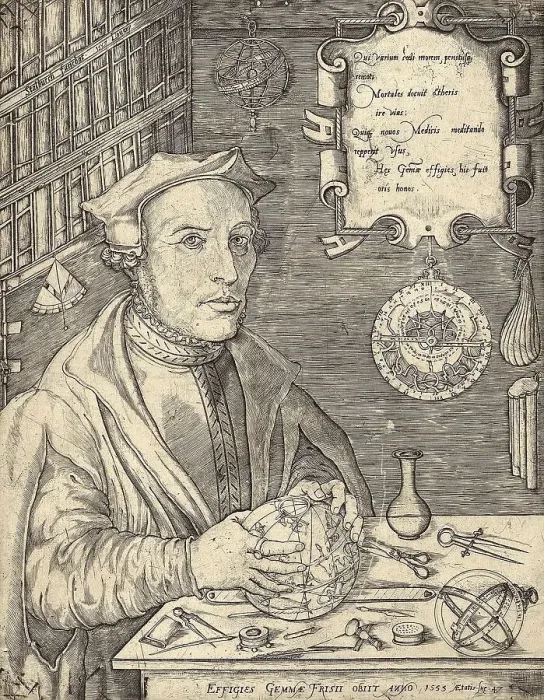 Qui varium cœli morem, penitusq;
remoti
Mortales docuit Ætheris
ire vias:
Quiq; nouos Medicis meditando
repperit Vsus,
Hęc Gemæ effigies, hic fuit
oris honos.
EFFIGIES GEMMÆ FRISII OBIIT ANNO 1555 Ætatis suę 47